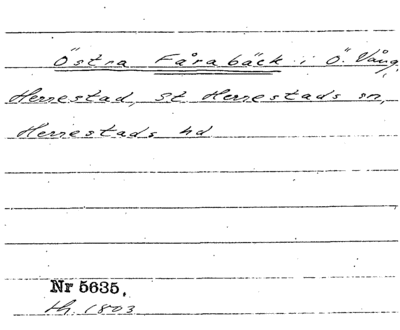 Östra Fårabäck i Ö. Vång,
Herrestad, St Herrestads sn,
Herrestads hd
Nr 5635.
th. 1803